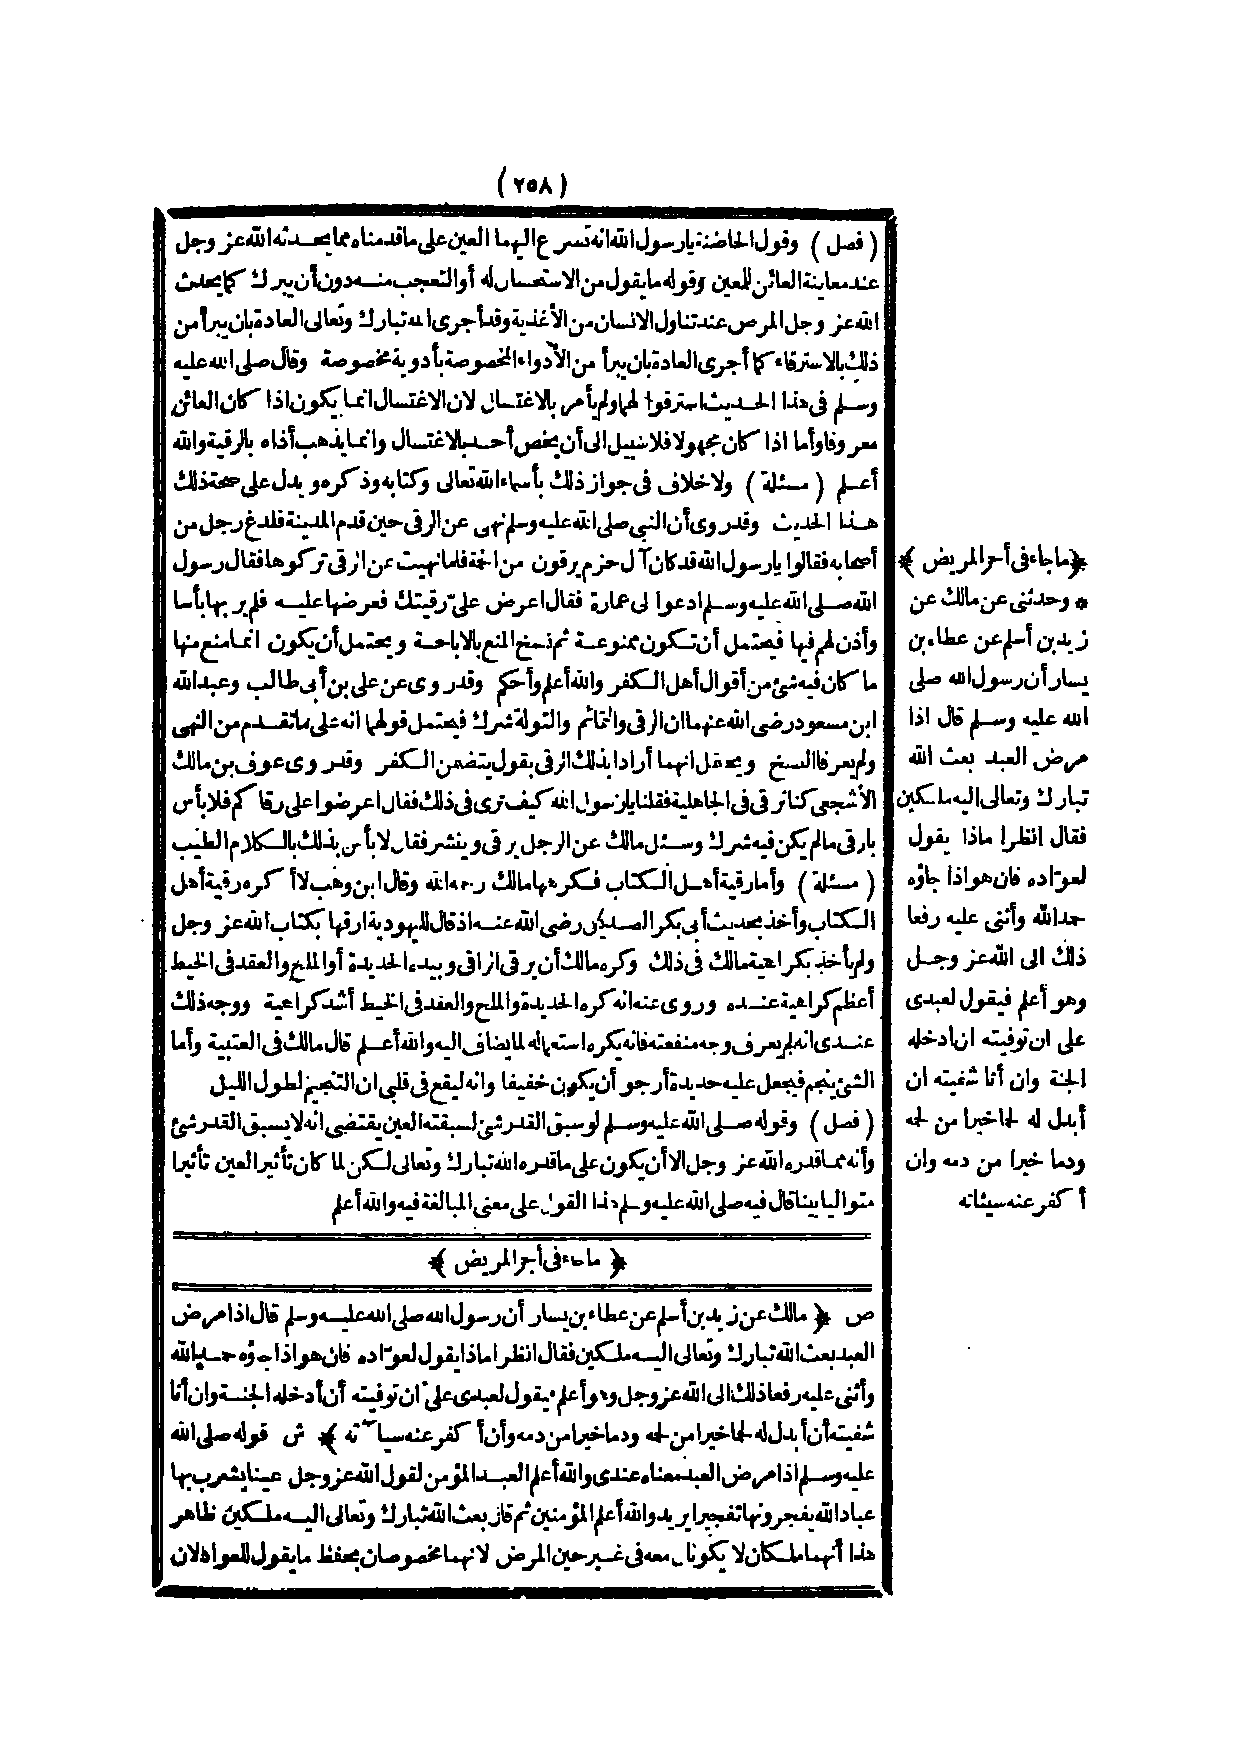 (٢٥٨)
(فصل) وقول الحاضنة يارسول الله انه تسرع اليهما العين على ما قدمناه مما يحدثه الله عز وجل
عند معاينة العائن للمعين وقوله ما يقول من الاستحسان له أو التعجب منه دون أن يبرك كما يحدث
الله عز وجل المرض عند تناول الانسان من الأغذية وقد أجرى الله تبارك وتعالى العادة بان يبرأ من
ذلك بالاسترقاء كما أجرى العادة بان يبرأ من الأدواء المخصوصة بأدوية مخصوصة وقال صلى الله عليه
وسلم فى هذا الحديث استرقوا لهما ولم يأمر بالاغتسال لان الاغتسال انما يكون اذا كان العائن
معروفا وأما اذا كان مجهولا فلا سبيل الى أن يخص أحد بالاغتسال وانما يذهب أذاه بالرقية والله
أعلم (مسئلة) ولا خلاف فى جواز ذلك بأسماء الله تعالى وكتابه وذكره ويدل على صحة ذلك
هذا الحديث وقد روى أن النبى صلى الله عليه وسلم نهى عن الرقى حين قدم المدينة فلدغ رجل من
أصحابه فقالوا يارسول الله قد كان آل حزم يرقون من الحمة فلما نهيت عن الرقى تركوها فقال رسول
الله صلى الله عليه وسلم ادعوا لى عمارة فقال اعرض علىّ رقيتك فعرضها عليه فلم ير بها بأسا
وأذن لهم فيها فيحتمل أن تكون ممنوعة ثم نسخ المنع بالاباحة ويحتمل أن يكون انما منع منها
ما كان فيه شئ من أقوال أهل الكفر والله أعلم وأحكم وقد روى عن على بن أبى طالب وعبد الله
ابن مسعود رضى الله عنهما ان الرقى والتمائم والتولة شرك فيحتمل قولهما انه على ما تقدم من النهى
ولم يعرفا النسخ ويحتمل انهما أرادا بذلك الرقى بقول يتضمن الكفر وقد روى عوف بن مالك
الأشجعى كنا نرقى فى الجاهلية فقلنا يارسول الله كيف ترى فى ذلك فقال اعرضوا على رقاكم فلا بأس
بالرقى مالم يكن فيه شرك وسئل مالك عن الرجل يرقى وينشر فقال لا بأس بذلك بالكلام الطيب
(مسئلة) وأما رقية أهل الكتاب فكرهها مالك رحمه الله وقال ابن وهب لا أكره رقية أهل
الكتاب وأخذ بحديث أبى بكر الصديق رضى الله عنه اذ قال لليهودية ارقها بكتاب الله عز وجل
ولم يأخذ بكراهية مالك فى ذلك وكره مالك أن يرقى الراقى وبيده الحديدة أو الملح والعقد فى الخيط
أعظم كراهية عنده وروى عنه انه كره الحديدة والملح والعقد فى الخيط أشد كراهية ووجه ذلك
عندى انه لم يعرف وجه منفعته فانه يكره استعماله لما يضاف اليه والله أعلم قال مالك فى العتبية وأما
الشئ ينجم فيجعل عليه حديدة أرجو أن يكون خفيفا وانه ليقع فى قلبى ان التنجيم لطول الليل
(فصل) وقوله صلى الله عليه وسلم لو سبق القدر شئ لسبقته العين يقتضى انه لا يسبق القدر شئ
وأنه مما قدره الله عز وجل الا أن يكون على ما قدره الله تبارك وتعالى لكن لما كان تأثير العين تأثيرا
متواليا بينا قال فيه صلى الله عليه وسلم هذا القول على معنى المبالغة فيه والله أعلم
﴿ ما جاء فى أجر المريض ﴾
ص ﴿ مالك عن زيد بن أسلم عن عطاء بن يسار أن رسول الله صلى الله عليه وسلم قال اذا مرض
العبد بعث الله تبارك وتعالى اليه ملكين فقال انظرا ماذا يقول لعوّاده فان هو اذا جاؤه حمد الله
وأثنى عليه رفعا ذلك الى الله عز وجل وهو أعلم فيقول لعبدى علىّ ان توفيته أن أدخله الجنة وان أنا
شفيته أن أبدل له لحما خيرا من لحمه ودما خيرا من دمه وأن أكفر عنه سيآته ﴾ ش قوله صلى الله
عليه وسلم اذا مرض العبد معناه عندى والله أعلم العبد المؤمن لقول الله عز وجل عينا يشرب بها
عباد الله يفجرونها تفجيرا يريد والله أعلم المؤمنين ثم قال بعث الله تبارك وتعالى اليه ملكين ظاهر
هذا أنهما ملكان لا يكونان معه فى غير حين المرض لانهما مخصوصان بحفظ ما يقول للعواد لان
﴿ماجاء فى أجر المريض﴾
* وحدثنى عن مالك عن
زيد بن أسلم عن عطاء بن
يسار أن رسول الله صلى
الله عليه وسلم قال اذا
مرض العبد بعث الله
تبارك وتعالى اليه ملكين
فقال انظرا ماذا يقول
لعوّاده فان هو اذا جاؤه
حمد الله وأثنى عليه رفعا
ذلك الى الله عز وجل
وهو أعلم فيقول لعبدى
على ان توفيته ان ادخله
الجنة وان أنا شفيته ان
أبدل له لحما خيرا من لحمه
ودما خيرا من دمه وان
أكفر عنه سيئاته